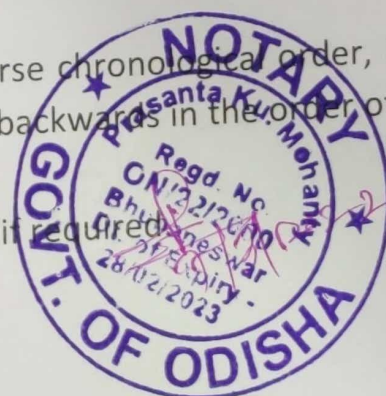 rse chronological order,
backwards in the order of
if required
NOTARY
GOVT. OF ODISHA
Prasanta Ku. Mohanty
Regd. No
ON/22/2000
Bhubaneswar
Dt. Of Expiry -
28/02/2023